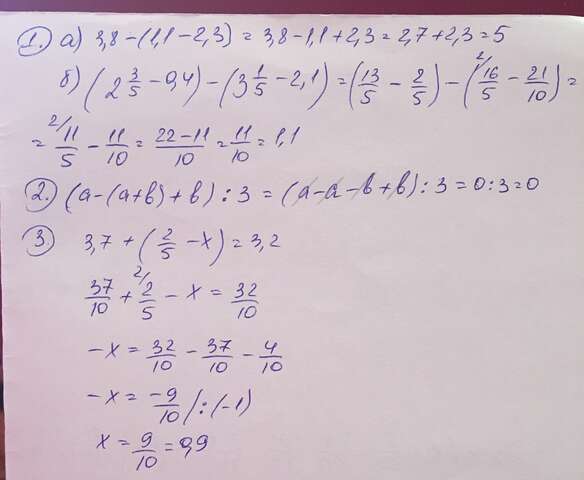 1. а) 3,8 - (1,1 - 2,3) = 3,8 - 1,1 + 2,3 = 2,7 + 2,3 = 5
б) (2 3/5 - 0,4) - (3 1/5 - 2,1) = (13/5 - 2/5) - (2/ 16/5 - 21/10) =
= 2/ 11/5 - 11/10 = 22-11/10 = 11/10 = 1,1
2. (а-(а+в)+в) : 3 = (а-а-в+в) : 3 = 0 : 3 = 0
3. 3,7 + (2/5 - х) = 3,2
37/10 + 2/ 2/5 - х = 32/10
-х = 32/10 - 37/10 - 4/10
-х = -9/10 / : (-1)
х = 9/10 = 0,9